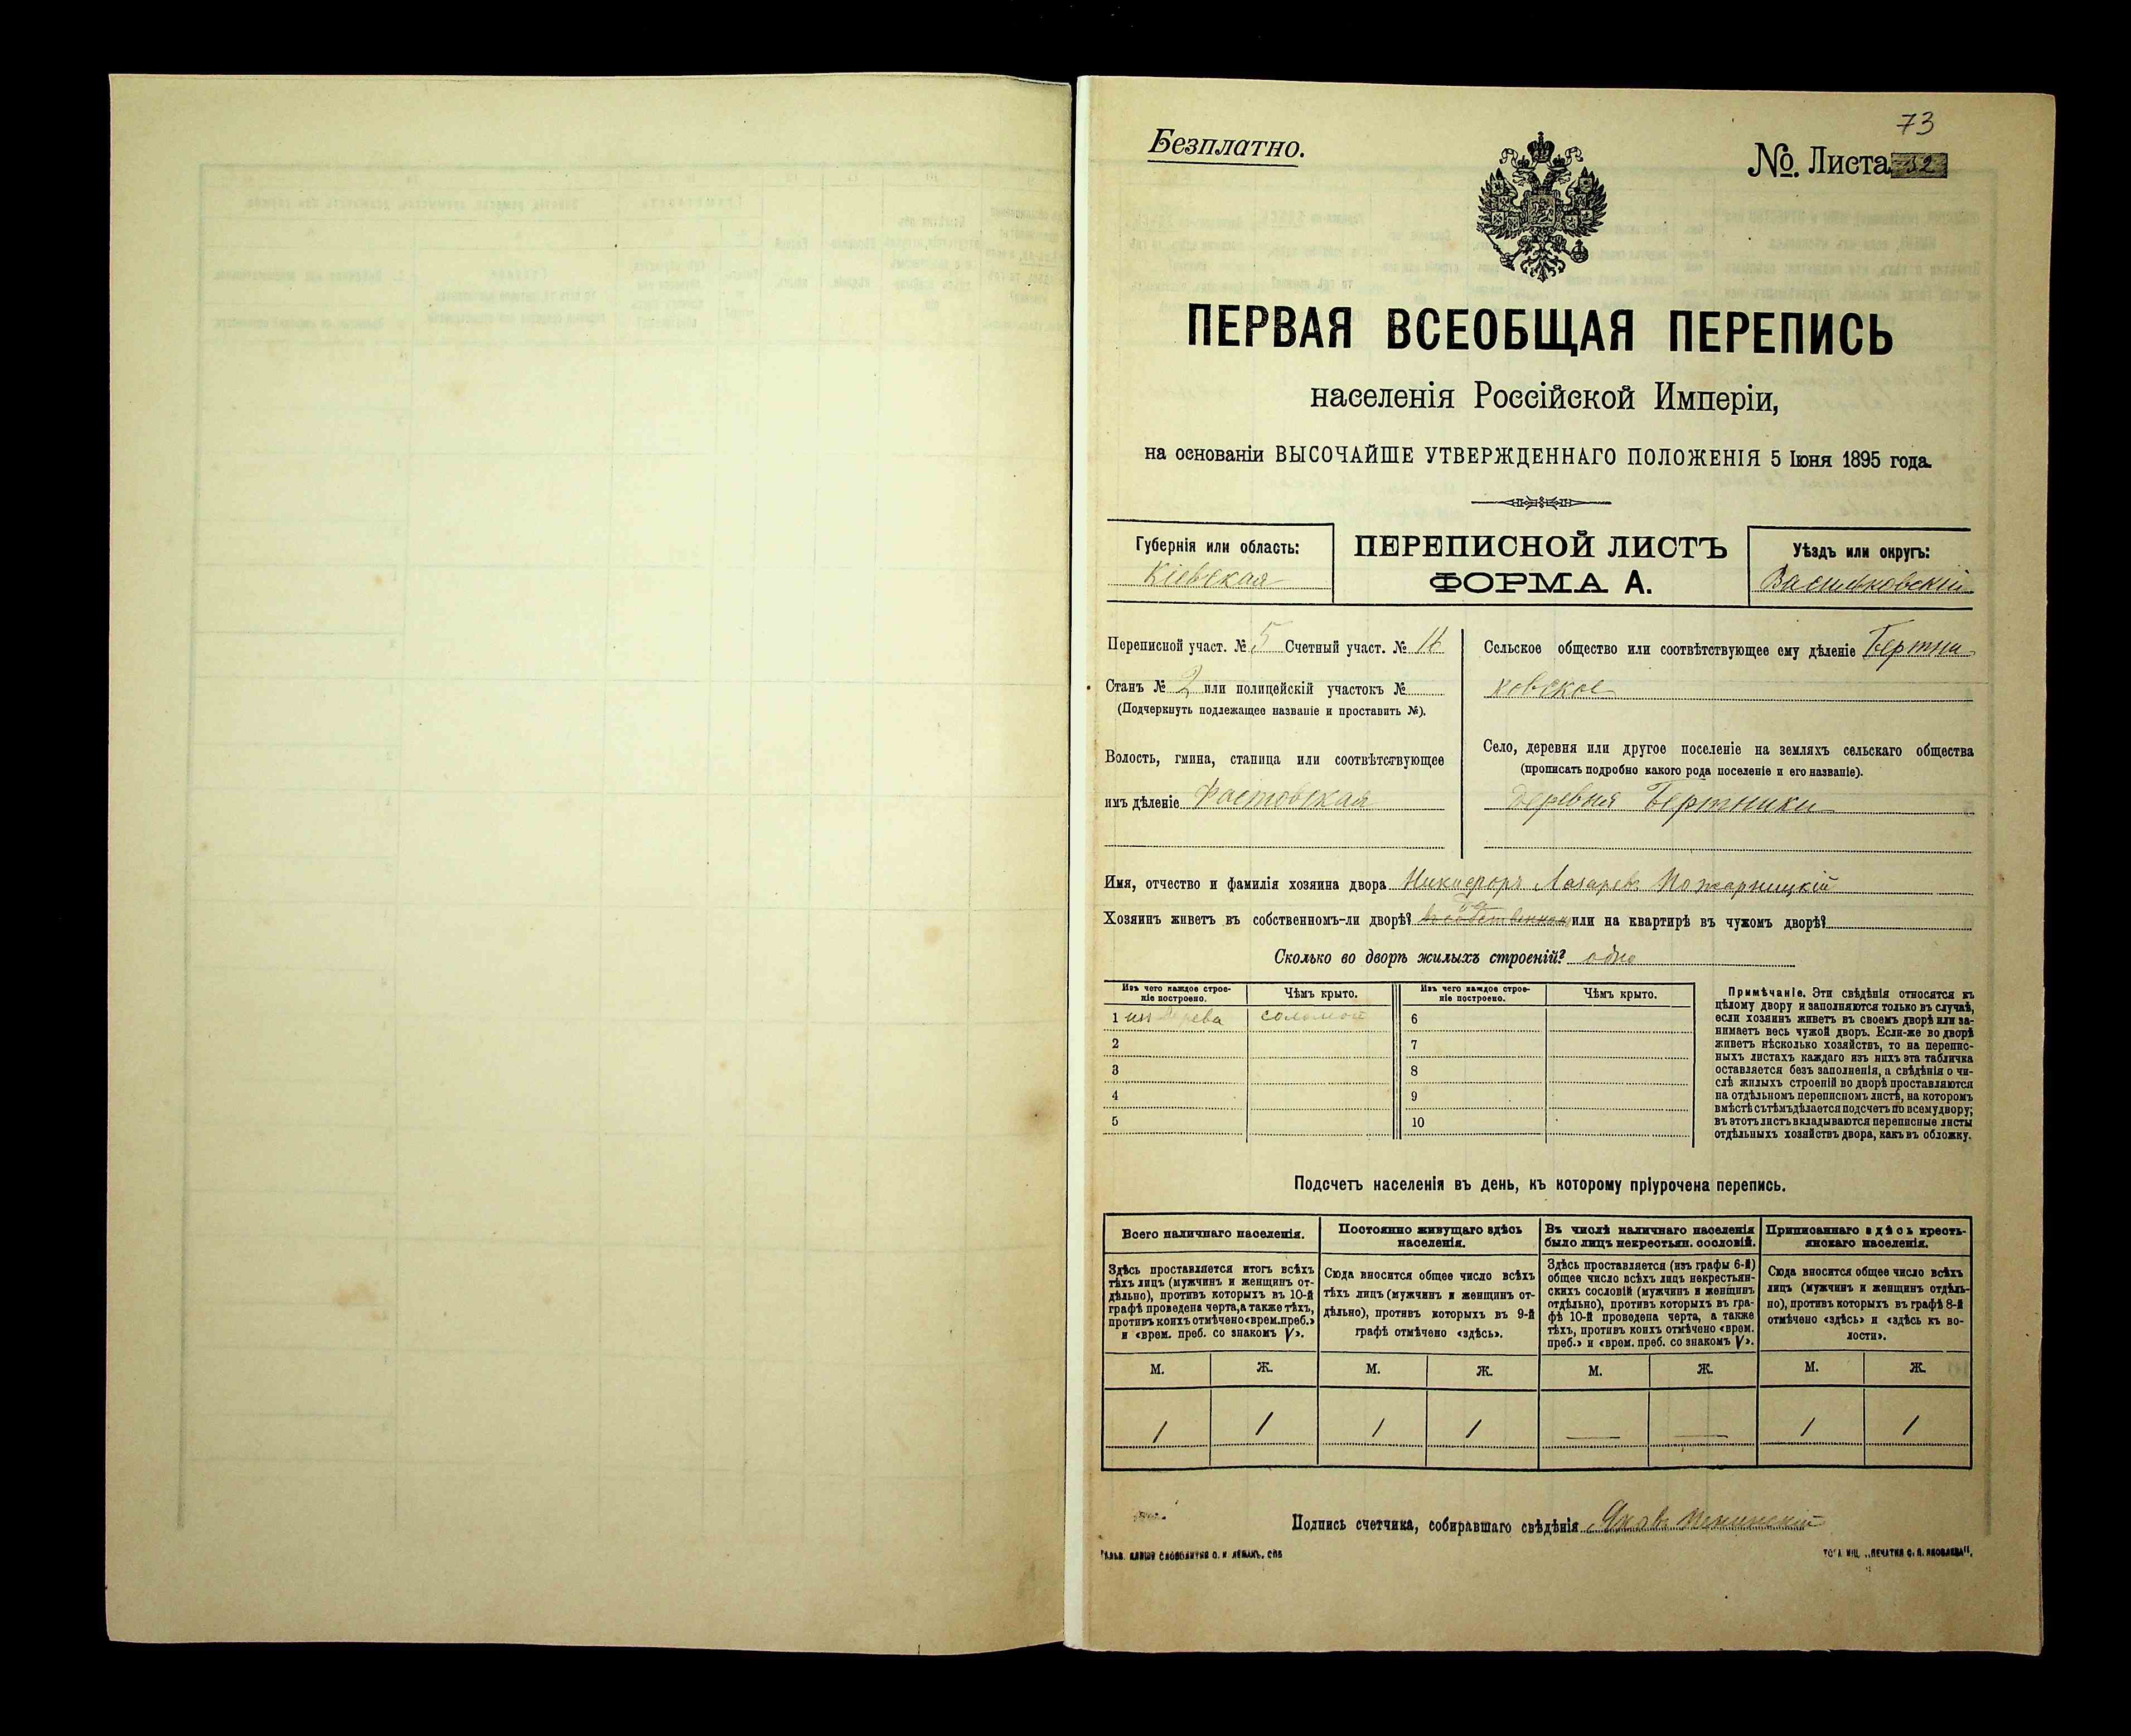 73
Безплатно.
№. Листа 32
ПЕРВАЯ ВСЕОБЩАЯ ПЕРЕПИСЬ
населенія Россійской Имперіи,
на основаніи ВЫСОЧАЙШЕ УТВЕРЖДЕННАГО ПОЛОЖЕНІЯ 5 Іюня 1895 года.
Губернія или область:
Кіевская
ПЕРЕПИСНОЙ ЛИСТЪ
ФОРМА А.
Уѣздъ или округъ:
Васильковскій
Переписной участ. № 5 Счетный участ. №
Станъ № 2 или полицейскій участокъ №
(Подчеркнуть подлежащее названіе и проставить №).
Волость, гмина, станица или соотвѣтствующее
имъ дѣленіе Фастовская
Сельское общество или соотвѣтствующее ему дѣленіе Бертни
ковское
Село, деревня или другое поселеніе на земляхъ сельскаго общества
(прописать подробно какого рода поселеніе и его названіе).
деревня Бертники
Имя, отчество и фамилія хозяина двора Никифоръ Лазаревъ Пожарницкій
Хозяинъ живетъ въ собственномъ-ли дворѣ? да или на квартирѣ въ чужомъ дворѣ?
Сколько во дворѣ жилыхъ строеній? одно
Изъ чего каждое строе-
ніе построено.
Чѣмъ крыто.
Изъ чего каждое строе-
ніе построено.
Чѣмъ крыто.
1 изъ дерева соломой 6
2 7
3 8
4 9
5 10
Примѣчаніе. Эти свѣдѣнія относятся къ
цѣлому двору и заполняются только въ случаѣ,
если хозяинъ живетъ въ своемъ дворѣ или за-
нимаетъ весь чужой дворъ. Если-же во дворѣ
живетъ нѣсколько хозяйствъ, то на перепис-
ныхъ листахъ каждаго изъ нихъ эта табличка
оставляется безъ заполненія, а свѣдѣнія о чи-
слѣ жилыхъ строеній во дворѣ проставляются
на отдѣльномъ переписномъ листѣ, на которомъ
вмѣстѣ съ тѣмъ дѣлается подсчетъ по всему двору;
въ этотъ листъ вкладываются переписные листы
отдѣльныхъ хозяйствъ двора, какъ въ обложку.
Подсчетъ населенія въ день, къ которому пріурочена перепись.
Всего наличнаго населенія.
Здѣсь проставляется итогъ всѣхъ
тѣхъ лицъ (мужчинъ и женщинъ от-
дѣльно), противъ которыхъ въ 10-й
графѣ проведена черта, а также тѣхъ,
противъ коихъ отмѣчено «врем. преб.»
и «врем. преб. со знакомъ V».
Постоянно живущаго здѣсь
населенія.
Сюда вносится общее число всѣхъ
тѣхъ лицъ (мужчинъ и женщинъ от-
дѣльно), противъ которыхъ въ 9-й
графѣ отмѣчено «здѣсь».
Въ числѣ наличнаго населенія
было лицъ некрестьян. сословій.
Здѣсь проставляется (изъ графы 6-й)
общее число всѣхъ лицъ некрестьян-
скихъ сословій (мужчинъ и женщинъ
отдѣльно), противъ которыхъ въ гра-
фѣ 10-й проведена черта, а также
тѣхъ, противъ коихъ отмѣчено «врем.
преб.» и «врем. преб. со знакомъ V».
Приписаннаго здѣсь кресть-
янскаго населенія.
Сюда вносится общее число всѣхъ
лицъ (мужчинъ и женщинъ отдѣль-
но), противъ которыхъ въ графѣ 8-й
отмѣчено «здѣсь» и «здѣсь къ во-
лости».
М. Ж. М. Ж. М. Ж. М. Ж.
1 1 1 1 — — 1 1
Подпись счетчика, собиравшаго свѣдѣнія Яковъ